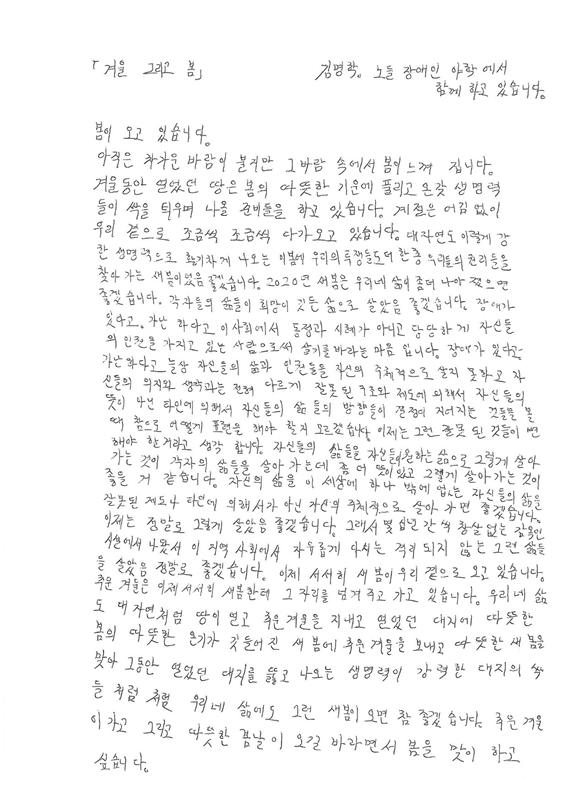 「겨울 그리고 봄」 김명학. 노들 장애인 야학에서
함께 하고 있습니다.
봄이 오고 있습니다.
아직은 차가운 바람이 불지만 그 바람 속에서 봄이 느껴 집니다.
겨울동안 얼었던 땅은 봄의 따뜻한 기운에 풀리고 온갖 생명력
들이 싹을 틔우며 나올 준비들을 하고 있습니다. 계절은 어김 없이
우리 곁으로 조금씩 조금씩 다가오고 있습니다. 대자연도 이렇게 강
한 생명력으로 활기차게 나오는 이봄에 우리의 투쟁들도 더한층 우리들의 권리들을
찾아 가는 새봄이었음 좋겠습니다. 2020년 새봄은 우리네 삶이 좀더 나아 졌으면
좋겠습니다. 각자들의 삶들이 희망이 깃든 삶으로 살았음 좋겠습니다. 장애가
있다고. 가난 하다고 이사회에서 동정과 시혜가 아니고 당당하게 자신들
의 인권을 가지고 있는 사람으로써 살기를 바라는 마음 입니다. 장애가 있다고
가난하다고 늘상 자신들의 삶과 인권들을 자신의 주체적으로 살지 못하고 자
신들의 의지와 생각과는 전혀 다르게 잘못된 구조와 제도에 의해서 자신들의
뜻이 아닌 타인에 의해서 자신들의 삶 들의 방향들이 결정이 지어지는 것들을 볼
때 참으로 어떻게 표현을 해야 할지 모르겠습니다 이제는 그런 잘못 된 것들이 변
해야 한 거라고 생각 합니다. 자신들의 삶들을 자신들이 원하는 삶으로 그렇게 살아
가는 것이 각자의 삶들을 살아 가는데 좀 더 뜻이 있고 그렇게 살아가는 것이
좋을 거 같습니다. 자신의 삶을 이 세상에 하나 밖에 없는 자신들의 삶을
잘못된 제도나 타인에 의해서가 아닌 자신의 주체적으로 살아 가면 좋겠습니다.
이제는 정말로 그렇게 살았음 좋겠습니다. 그래서 몇 십년 간 씩 창살 없는 감옥인
시설에서 나왔서 이 지역 사회에서 자유롭게 사는 격리 되지 않는 그런 삶들
을 살았음 정말로 좋겠습니다. 이제 서서히 새 봄이 우리 곁으로 오고 있습니다.
추운 겨울은 이제 서서히 새봄한테 그 자리를 넘겨 주고 가고 있습니다. 우리네 삶
도 대자연처럼 땅이 얼고 추운겨울을 지내고 얼었던 대지에 따뜻한
봄의 따뜻한 온기가 깃들어진 새 봄에 추운겨울을 보내고 따뜻한 새 봄을
맞아 그동안 얼었던 대지를 뚫고 나오는 생명력이 강력한 대지의 싹
들 처럼 처럼 우리네 삶에도 그런 새봄이 오면 참 좋겠 습니다. 추운 겨울
이 가고 그리고 따뜻한 봄날이 오길 바라면서 봄을 맞이 하고
싶습니다.